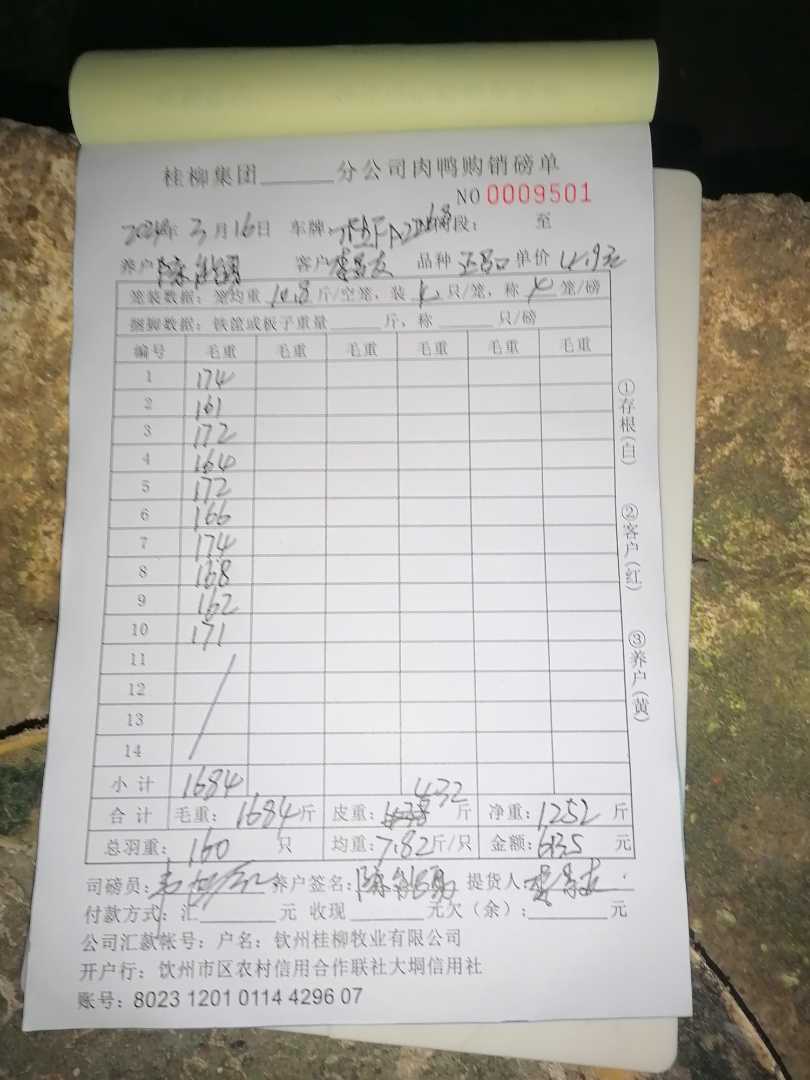 桂柳集团______分公司肉鸭购销磅单
NO 0009501
2024年3月16日 车牌: 时段: 至
养户 客户 品种 正品 单价 4.9元
笼装数据: 笼均重 10.8 斤/空笼, 装 4 只/笼, 称 4 笼/磅
捆脚数据: 铁筐或板子重量______斤, 称______只/磅
编号 毛重 毛重 毛重 毛重 毛重 毛重
1 174
2 161
3 172
4 164
5 172
6 166
7 174
8 168
9 162
10 171
11
12
13
14
小计 1684
432
合计 毛重: 1684斤 皮重: 斤 净重: 1252 斤
总羽重: 160 只 均重: 7.82斤/只 金额: 6135 元
司磅员: 养户签名: 提货人:
付款方式: 汇______元 收现______元欠(余):______元
公司汇款帐号: 户名: 钦州桂柳牧业有限公司
开户行: 钦州市区农村信用合作联社大垌信用社
账号: 8023 1201 0114 4296 07
①存根(白)
②客户(红)
③养户(黄)